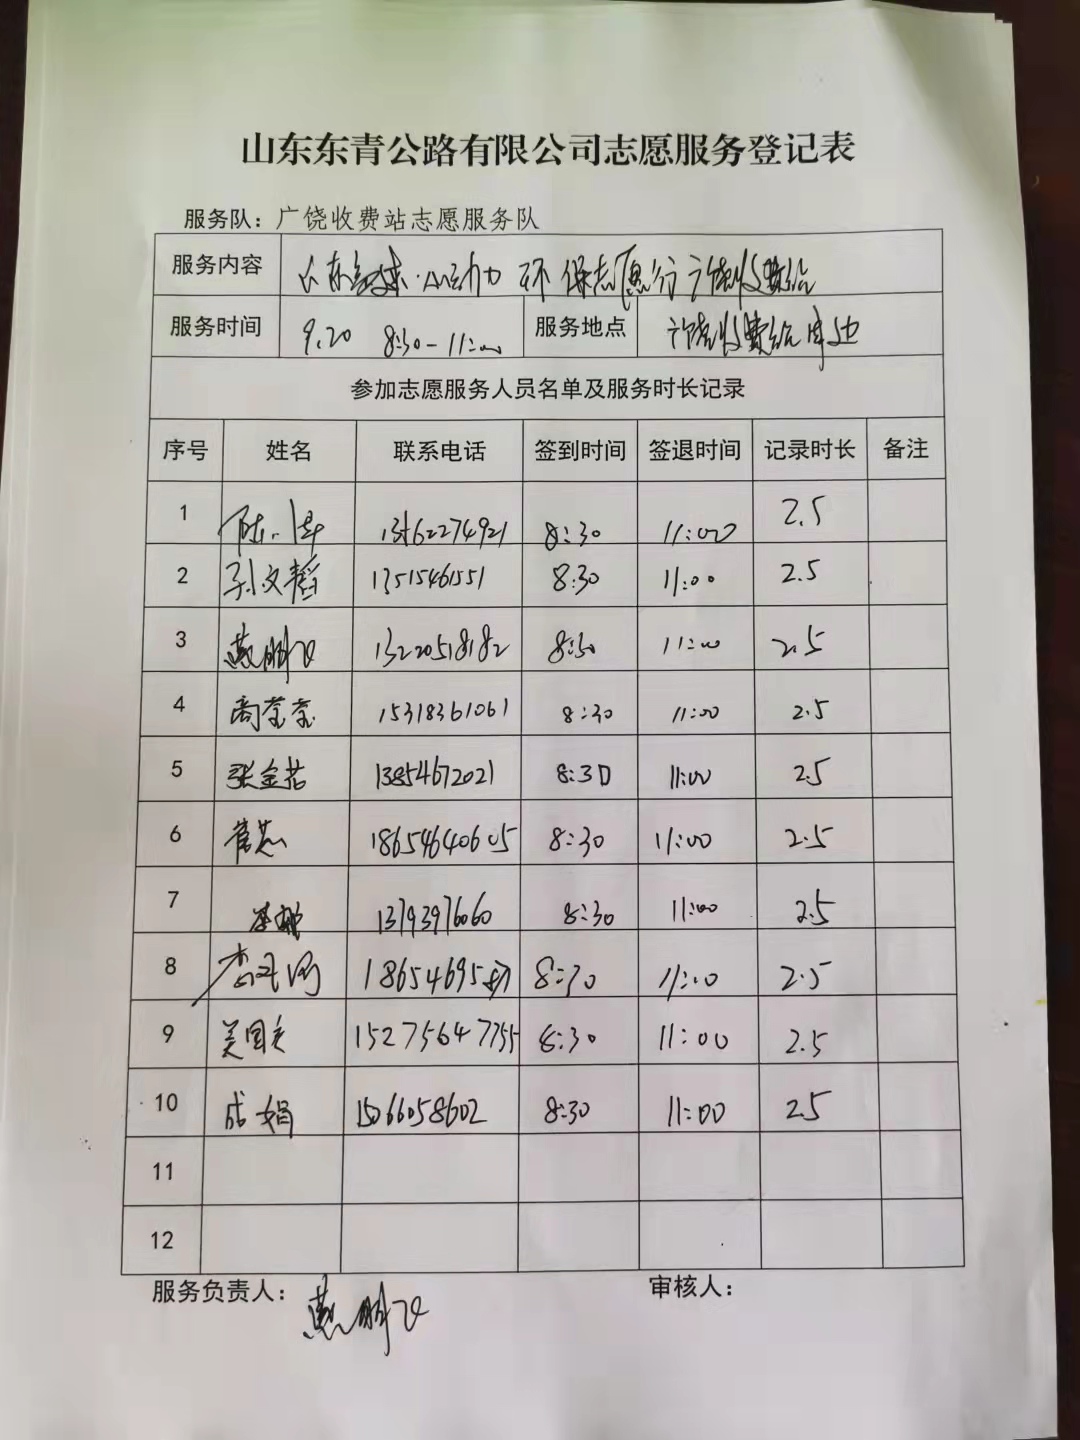 山东东青公路有限公司志愿服务登记表
服务队：广饶收费站志愿服务队
服务内容 环保志愿行 广饶收费站
服务时间 9.20 8:30-11:00 服务地点 广饶收费站周边
参加志愿服务人员名单及服务时长记录
序号 姓名 联系电话 签到时间 签退时间 记录时长 备注
1 8:30 11:00 2.5
2 孙文韬 13515461551 8:30 11:00 2.5
3 燕鹏飞 13220518182 8:30 11:00 2.5
4 商莹莹 15318361061 8:30 11:00 2.5
5 张金茹 13854672021 8:30 11:00 2.5
6 18654640605 8:30 11:00 2.5
7 李娜 13793976060 8:30 11:00 2.5
8 8:30 11:00 2.5
9 15275647755 8:30 11:00 2.5
10 成娟 15066058602 8:30 11:00 2.5
11
12
服务负责人：燕鹏飞 审核人：